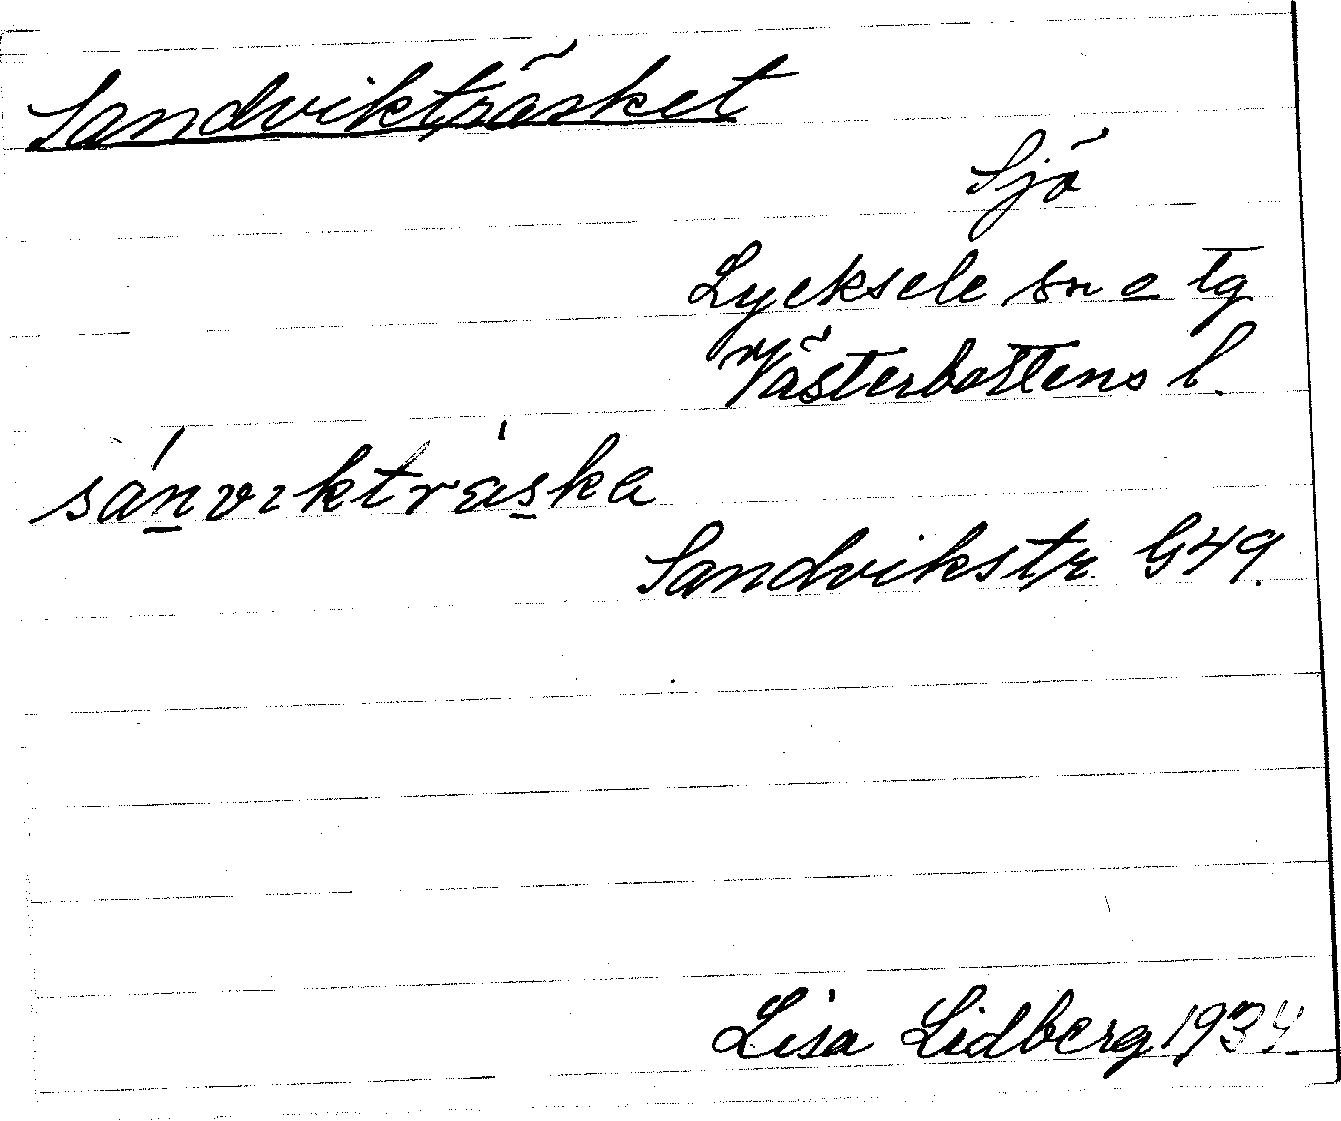 Sandvikträsket
Sjö
Lycksele sn o tg
Västerbottens l.
sánvıkträska
Sandvikstr. G49.
Lisa Lidberg 1934